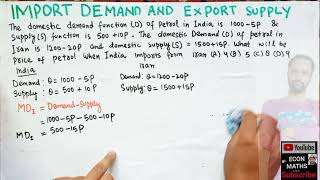 IMPORT DEMAND AND EXPORT SUPPLY
The domestic demand function (D) of Petrol in India is 1000-5P &
Supply(S) function is 500+10P. The domestic Demand (D) of petrol in
Iran is 1200-20P and domestic supply(S) = 1500+15P. What will be
Price of petrol when India imports from iran (A) 4 (B) 5 (C) 8 (D) 9
India
Iran
Demand: Q = 1000-5P
Demand: Q = 1200-20P
Supply: Q = 500+10P
Supply: Q = 1500+15P
MDI = Demand-Supply
= 1000-5P-500-10P
MDI = 500-15P
YouTube
ECON
MATHS
Subscribe